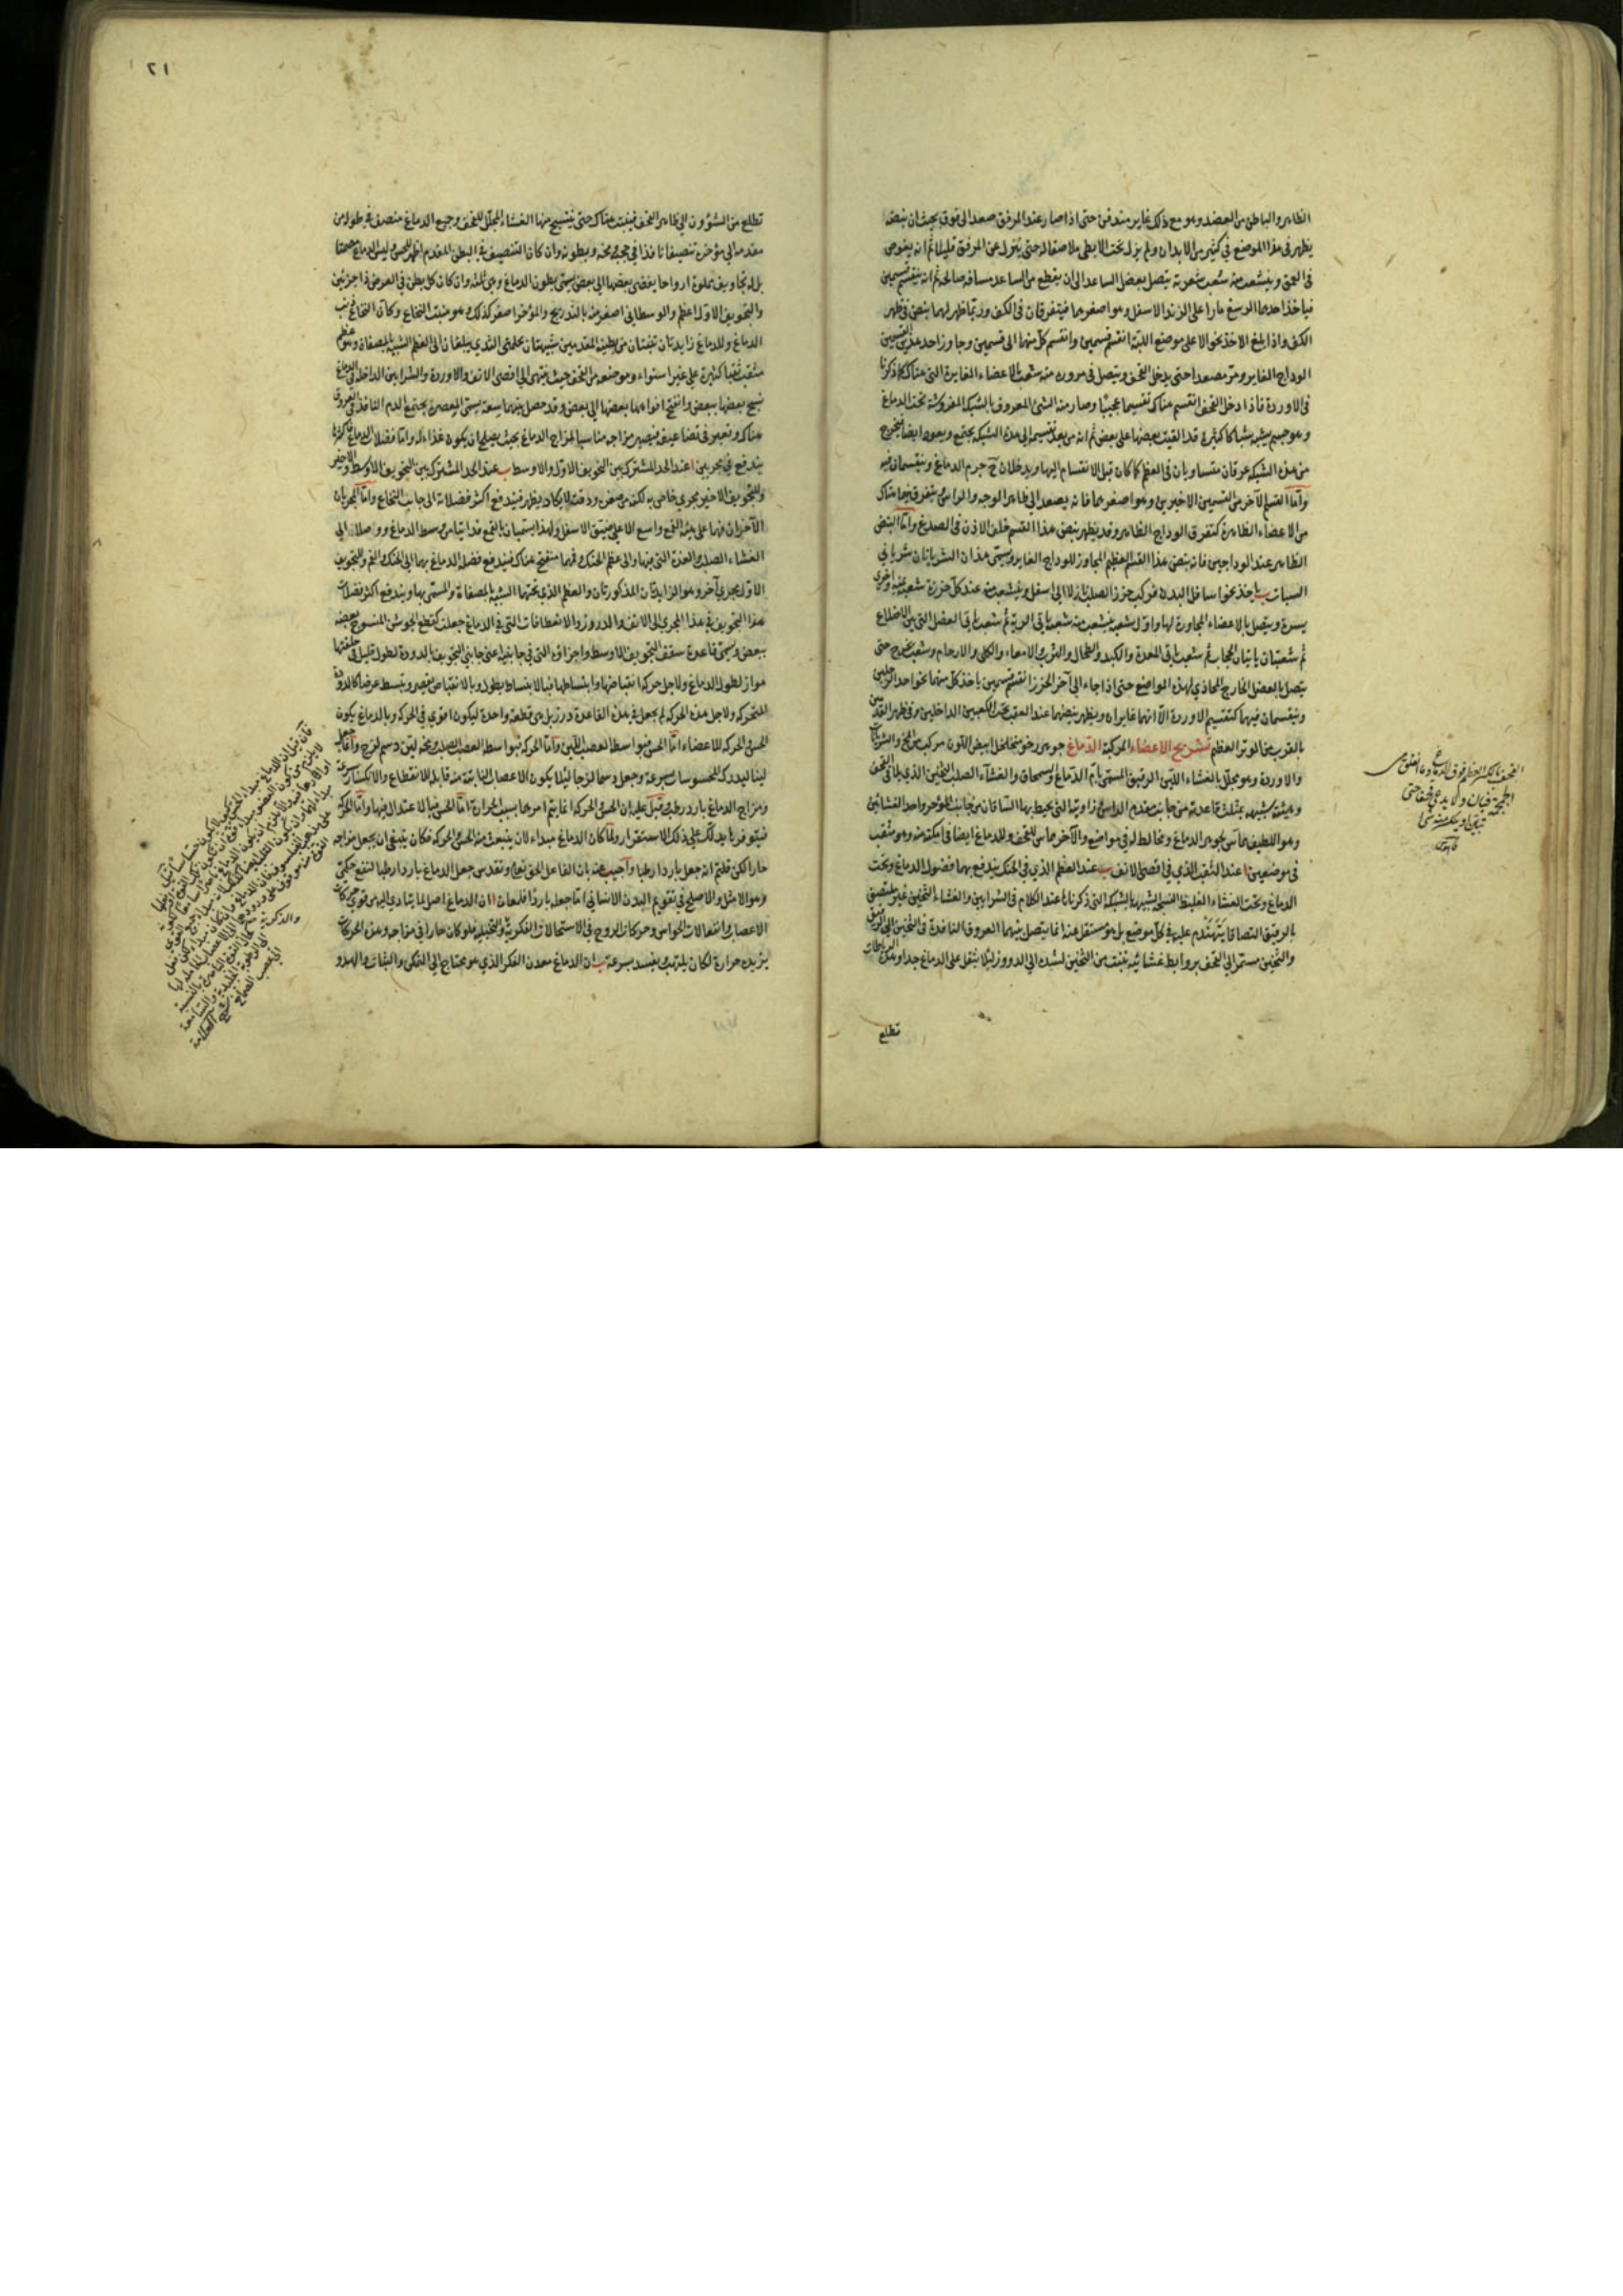 الظاهر والباطن من العضد وهو مع ذلك غاير مندفن حتى اذا صار عند المرفق صعد الى فوق بحيث ان نبضه
يظهر في هذا الموضع في كثير من الابدان ولم يزل تحت الابطي ملاصقا له حتى ينزل عن المرفق قليلا ثم انه يغوص
في العمق ويتشعب منه شعب شعرية تتصل بعضل الساعد الى ان يقطع من الساعد مسافة صالحة ثم انه ينقسم قسمين
فياخذ احدهما الى الرسغ مارا على الزند الاسفل وهو اصغرهما فيتفرقان في الكف وربما ظهر لهما نبض في ظهر
الكف واذا بلغ الاخذ نحو الاعلى موضع اللبة انقسم قسمين وانقسم كل منهما الى قسمين وجاوز احد هذين القسمين
الوداج الغاير ومر مصعدا حتى يدخل القحف ويتصل في مروره منه شعب بالاعضاء الغايرة التي هناك كما ذكرنا
في الاوردة فاذا دخل القحف انقسم هناك تقسيما عجيبا وصار منه الشئ المعروف بالشبكة المفروشة تحت الدماغ
وهو جسم يشبه شباكا كثيرة قد القيت بعضها على بعض ثم انه من بعد تقسيمه الى هذه الشبكة يجتمع ويعود ايضا فيخرج
من هذه الشبكة عرقان متساويان في العظم كما كان قبل الانقسام اليها ويدخلان ح جرم الدماغ وينقسمان فيه
واما القسم الآخر من القسمين الاخيرين وهو اصغرهما فانه يصعد الى ظاهر الوجه والراس ويتفرق فيما هناك
من الاعضاء الظاهرة كتفرق الوداج الظاهر وقد يظهر نبض هذا القسم خلف الاذن في الصدغ واما النبض
الظاهر عند الوداجين فانه نبض هذا القسم العظيم المجاور للوداج الغاير ويسمى هذان الشريانان شرياني
السبات ب ياخذ نحو اسافل البدن فيركب خرز الصلب نازلا الى اسفل ويتشعب منه عند كل خرزة شعبة يمنة واخرى
يسرة ويتصل بالاعضاء المجاورة لها واول شعبة يتشعب منه شعبة تاتي الرية ثم شعب تاتي العضل التي بين الاضلاع
ثم شعبتان ياتيان الحجاب ثم شعب ياتي المعدة والكبد والطحال والثرب والامعاء والكلى والارحام وشعب يخرج حتى
يتصل بالعضل الخارج المحاذي لهذه المواضع حتى اذا جاء الى آخر الخرز انقسم قسمين ياخذ كل منهما نحو احد الرجلين
وينقسمان فيهما كتقسيم الاوردة الا انهما غايران ويظهر نبضهما عند العقب تحت الكعبين الداخلين وفي ظهر القدمين
بالقرب من الوتر العظيم تشريح الاعضاء المركبة الدماغ جوهر رخو متخلخل ابيض اللون مركب من المخ والشريانات
والاوردة وهو مجلل بالغشاء اللين الرقيق المسمى بام الدماغ والسمحاق والغشاء الصلب الثخين الذي يلاقي القحف
وهيئته شبيهة بمثلث قاعدته من جانب مقدم الراس وزاويته التي يحيط بها الساقان من جانب المؤخر واحد الغشائين
وهو اللطيف مماس بجوهر الدماغ ومخالط له في مواضع والآخر مماس للقحف وللدماغ ايضا في امكنة منه وهو مثقب
في موضعين ا عند الثقب الذي في اقصى الانف ب عند العظم الذي في الحنك يندفع بهما فضول الدماغ وتحت
الدماغ وتحت الغشاء الغليظ النسيجة الشبيهة بالشبكة التي ذكرناها عند الكلام في الشرايين والغشاء الثخين غير ملتصق
بالرقيق التصاقا يتهندم عليه في كل موضع بل هو مستقل عنه انما يتصل بينهما العروق النافذة في الثخين الى الرقيق
والثخين مستمر الى القحف بروابط غشائية تنبت من الثخين لتشده الى الدروز لئلا يثقل على الدماغ جدا وهذه الرباطات
تطلع
تطلع من الشؤون الى ظاهر القحف فينبت هناك حتى ينتسج منها الغشاء المجلل للقحف وجميع الدماغ منصف في طوله من
مقدمه الى مؤخره تنصيفا نافذا في حجبه ومخه وبطونه وان كان التنصيف في البطن المقدم اظهر للحس وليس الدماغ مصمتا
بل له تجاويف مملوة ارواحا يفضي بعضها الى بعض يسمى بطون الدماغ وهي ثلثة وان كان كل بطن في العرض ذا جزئين
والتجويف الاول اعظم والوسطاني اصغر منه بالتدريج والمؤخر اصغر كذلك وهو منبت النخاع وكان النخاع ذنب
الدماغ وللدماغ زايدتان تنبتان من بطنيه المقدمين شبيهتان بحلمتي الثدي يبلغان الى العظم الشبيه بالمصفاة وهو عظم
مثقب ثقبا كثيرة على غير استواء وموضعه من القحف حيث ينتهي الى اقصى الانف والاوردة والشرايين الداخلة في الدماغ
نسج بعضها ببعض وانفتح افواهها بعضها الى بعض وقد حصل بينهما سعة يسمى المعصرة يجتمع الدم النافذ في العروق
هناك وتعبر في تضاعيفه فيصير مزاجه مناسبا لمزاج الدماغ بحيث يصلح ان يكون غذاء له واما فضلات الدماغ
يندفع في مجريين ا عند الحد المشترك بين التجويف الاول والاوسط ب عند الحد المشترك بين التجويف الاوسط والاخير
وللتجويف الاخير مجرى خاص به لكنه من صغره ودقته لا يكاد يظهر فيندفع اكثر فضلاته الى جانب النخاع واما المجريان
الآخران فهما على هيئة القمع واسع الاعلى ضيق الاسفل ولهذا يسميان بالقمع قد ابتدا من وسط الدماغ ووصلا الى
الغشاء الصلب والغدة التي بينها والى عظم الحنك وفيهما منفتح هناك فيندفع فضلة الدماغ بهما الى الحنك والفم وللتجويف
الاول مجرى آخر وهو الزايدتان المذكورتان والعظم الذي تحتها الشبيه بالمصفاة والمسمى بها ويندفع اكثر فضلات
هذا التجويف في هذا المجرى الى الانف والدروز والانعطافات التي في الدماغ جعلت كقطع الجوشن المنسوج بعضه
ببعض ويسمى قاعدة سقف التجويف الاوسط واجزاؤه التي في جانبيه اعني جانبي التجويف بالدودة لطول قليل في خلقتها
مواز لطول الدماغ ولاجل حركة انقباضها وانبساطها فبالانبساط يطول وبالانقباض يقصر وينبسط عرضا كالدودة
المتحركة ولاجل هذه الحركة لم يجعل في هذه القاعدة درز بل هي قطعة واحدة ليكون اقوى في الحركة وبالدماغ يكون
الحس والحركة للاعضاء اما الحس فبواسطة العصب اللين واما الحركة فبواسطة العصب الصلب ومخه لين دسم لزج وانما جعل
لينا ليدرك المحسوسات بسرعة وجعل دسما لزجا لئلا يكون الاعصاب النابتة منه قابلة للانقطاع والانكسار بسرعة
ومزاج الدماغ بارد رطب وقيل عليه ان الحس والحركة انما يتم امرهما بسبب الحرارة اما الحس فبالاعتدال فيها واما الحركة
فبتوفرها يدلك على ذلك الاستقرار ولما كان الدماغ مبداء لان ينبعث منه الحس والحركة فكان ينبغي ان يجعل مزاجه
حارا لكن قلتم انه جعل باردا رطبا واجيب عنه بان الفاعل الحق تعالى وتقدس جعل الدماغ باردا رطبا لتتفع حكمتي
وهو الامثل والاصلح في تقويم البدن الانساني اما جعله باردا فلمعان ا ان الدماغ اصل لما يتادى اليه من قوى حركات
الاعصاب وانفعالات الحواس وحركات الروح في الاستحالات الفكرية والتخيلية فلو كان حارا في مزاجه وهذه الحركات
يزيده حرارة لكان يلتهب ويفسد بسرعة ب ان الدماغ معدن الفكر الذي هو محتاج الى التفكر والثبات والهدو
٢١